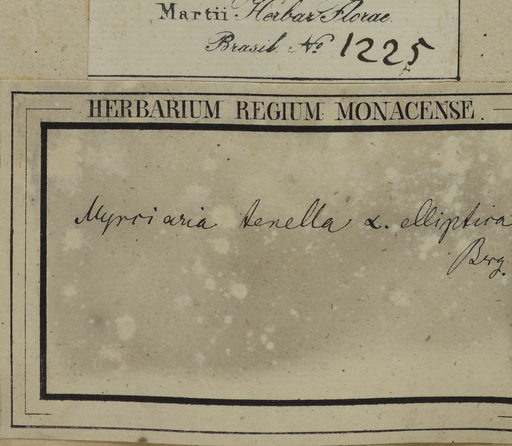 Martii Herbar. Florae
Brasil No 1225
HERBARIUM REGIUM MONACENSE.
Myrciaria tenella α. elliptica
Berg.